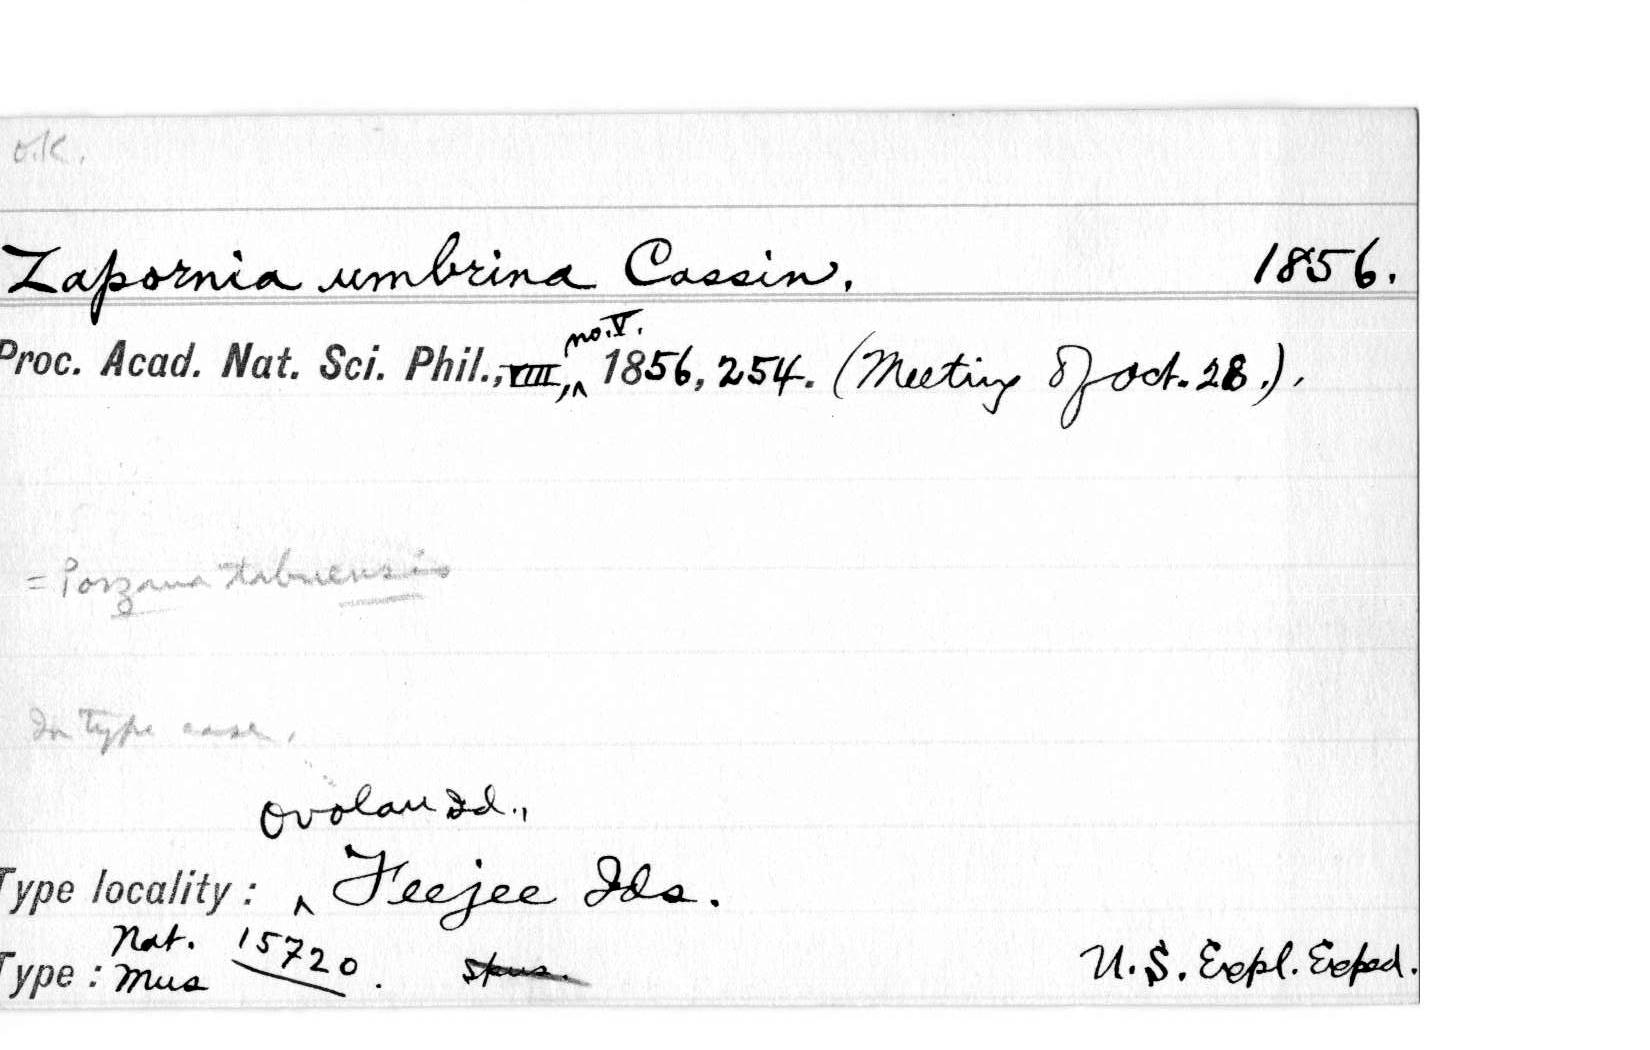 o.K.
Zapornia umbrina Cassin. 1856.
no. V.
Proc. Acad. Nat. Sci. Phil., VIII, ^ 1856, 254. (Meeting of Oct. 28.).
= Porzana tabuensis
In type case.
Ovolau Id.,
Type locality: ^ Feejee Ids.
Nat. 15720.
Type: Mus spns. U.S. Expl. Exped.